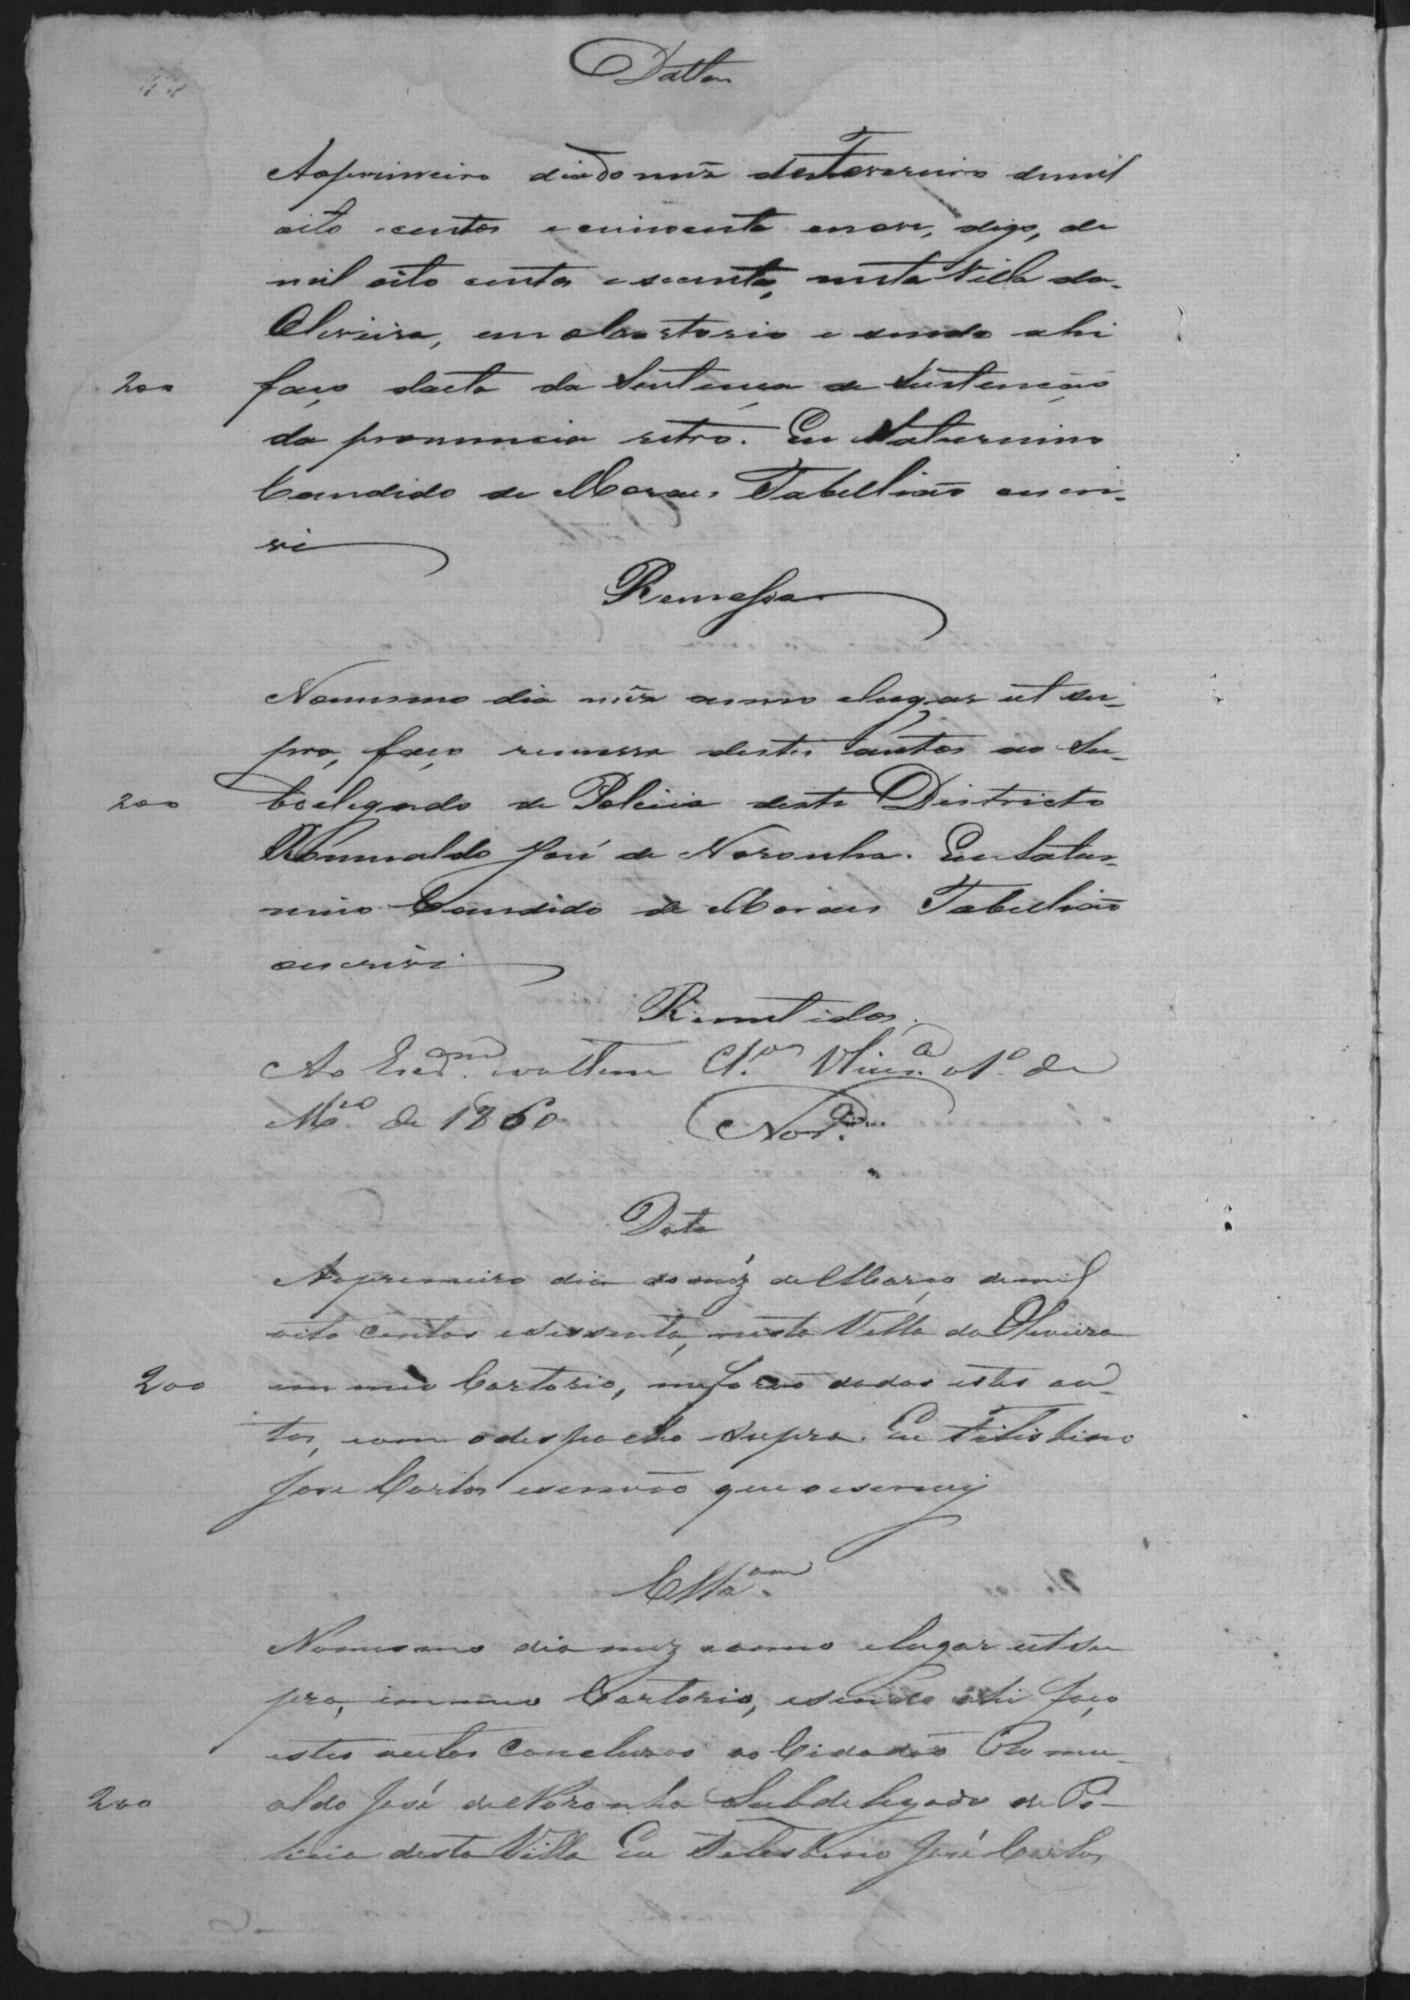 Datta
Aoprimeiro dia do mez de Fevereiro de mil
oito centos e cincoenta e nove, digo, de
mil oito centos e secenta, nesta Villa da
Oliveira, em o Cartorio e sendo ahi
200 faço dacta da Sentença de Sustenção
da pronuncia retro. Eu Saturnino
Candido de Moraes Tabellião escri-
vi
Remessa
Nomesmo dia mez anno elugar ut su-
pra, faço remessa destes autos ao Su-
200 bdelegado de Policia deste Districto
Romualdo José de Noronha. Eu Satur-
nino Candido de Moraes Tabellião
escrivi
Remetidos.
Ao Escr.am voltem Cl.os Olivr.a 1º de
M.ço de 1860 Nor.
Data
Aoprimeiro dia do mez de Março de mil
oito centos esessenta, nesta Villa da Oliveira
200 em meu Cartorio, meforão dados estes au-
tos, com odespacho supra. Eu Felisbino
José Carlos escrivão que o escrevy
Cllz.am
Nomesmo dia mez eanno elugar ut su
pra, emmeu Cartorio, esendo ahi faço
estes autos Concluzos ao Cidadão Romu-
200 aldo José de Noronha Subdelegado de Po-
licia desta Villa Eu Felisbino José Carlos